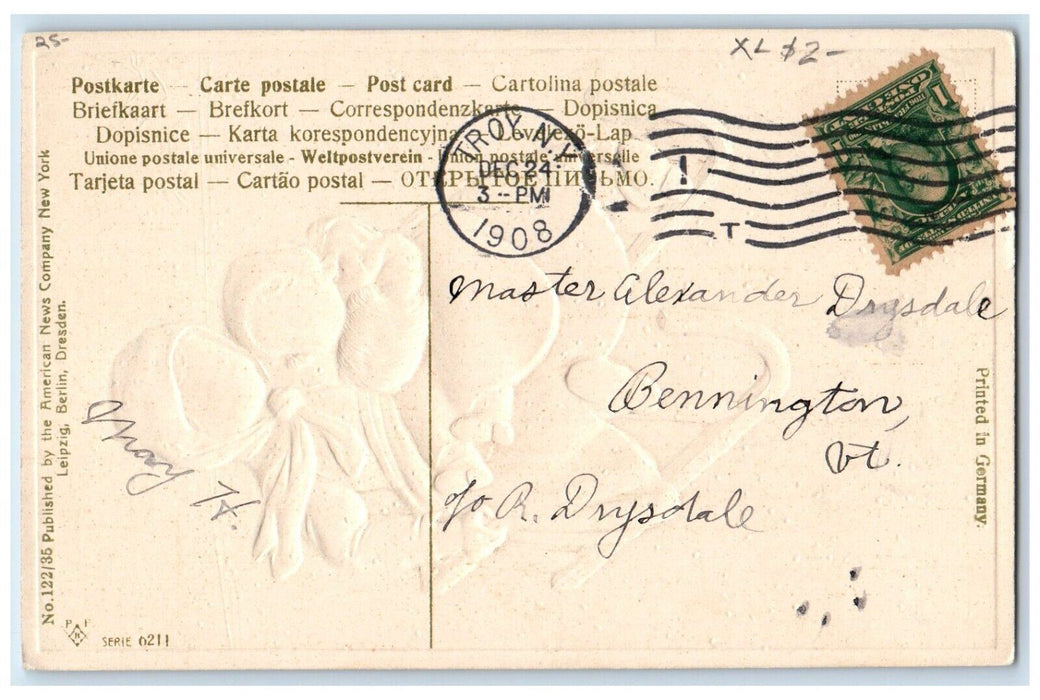 25-
XL $2-
Postkarte — Carte postale — Post card — Cartolina postale
Briefkaart — Brefkort — Correspondenzkarte — Dopisnica
Dopisnice — Karta korespondencyjna — Levelező-Lap
Unione postale universale - Weltpostverein - Union postale universelle
Tarjeta postal — Cartão postal — ОТКРЫТОЕ ПИСЬМО.
TROY, N.Y.
DEC 24
3 - PM
1908
1
T
Master Alexander Drysdale
Bennington,
Vt.
c/o A. Drysdale
No. 122/35 Published by the American News Company New York
Leipzig, Berlin, Dresden.
Printed in Germany.
P F
B
SERIE 6211